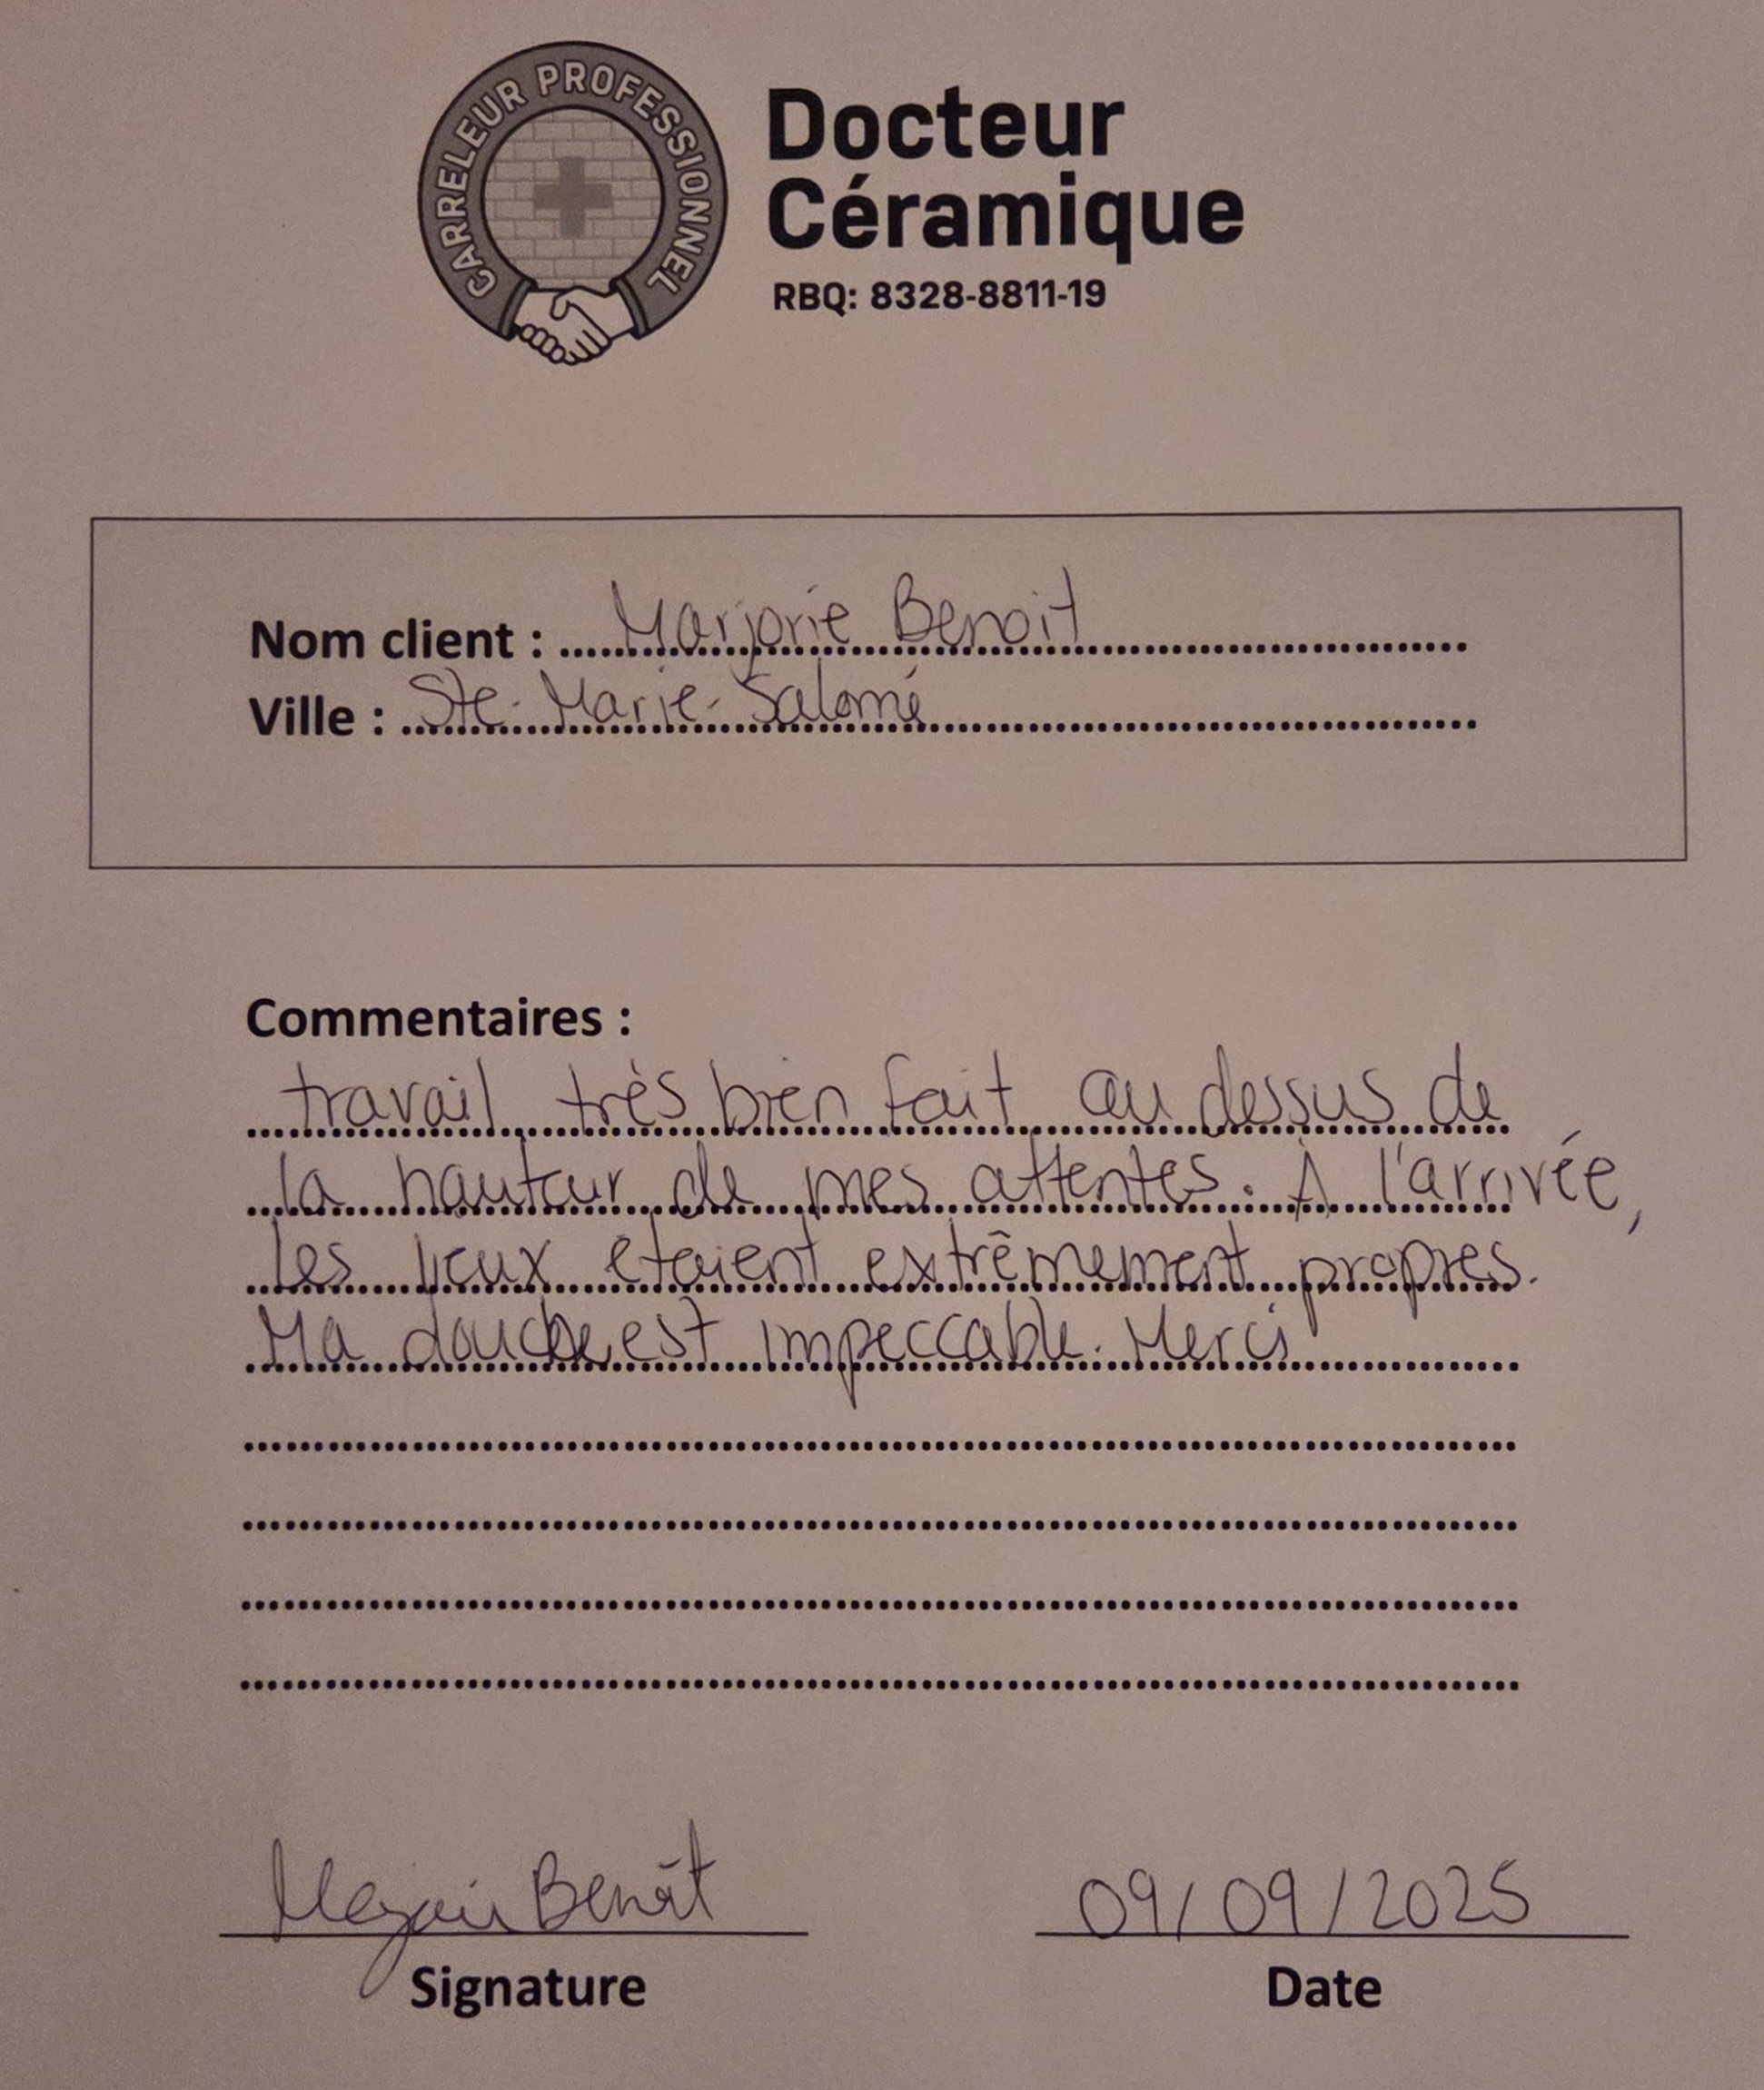 CARRELEUR PROFESSIONNEL
Docteur
Céramique
RBQ: 8328-8811-19
Nom client : Marjorie Benoit
Ville : Ste-Marie-Salomé
Commentaires :
travail très bien fait au dessus de
la hauteur de mes attentes. À l'arrivée,
les lieux étaient extrêmement propres.
Ma douche est impeccable. Merci
Marjorie Benoit
09/09/2025
Signature
Date